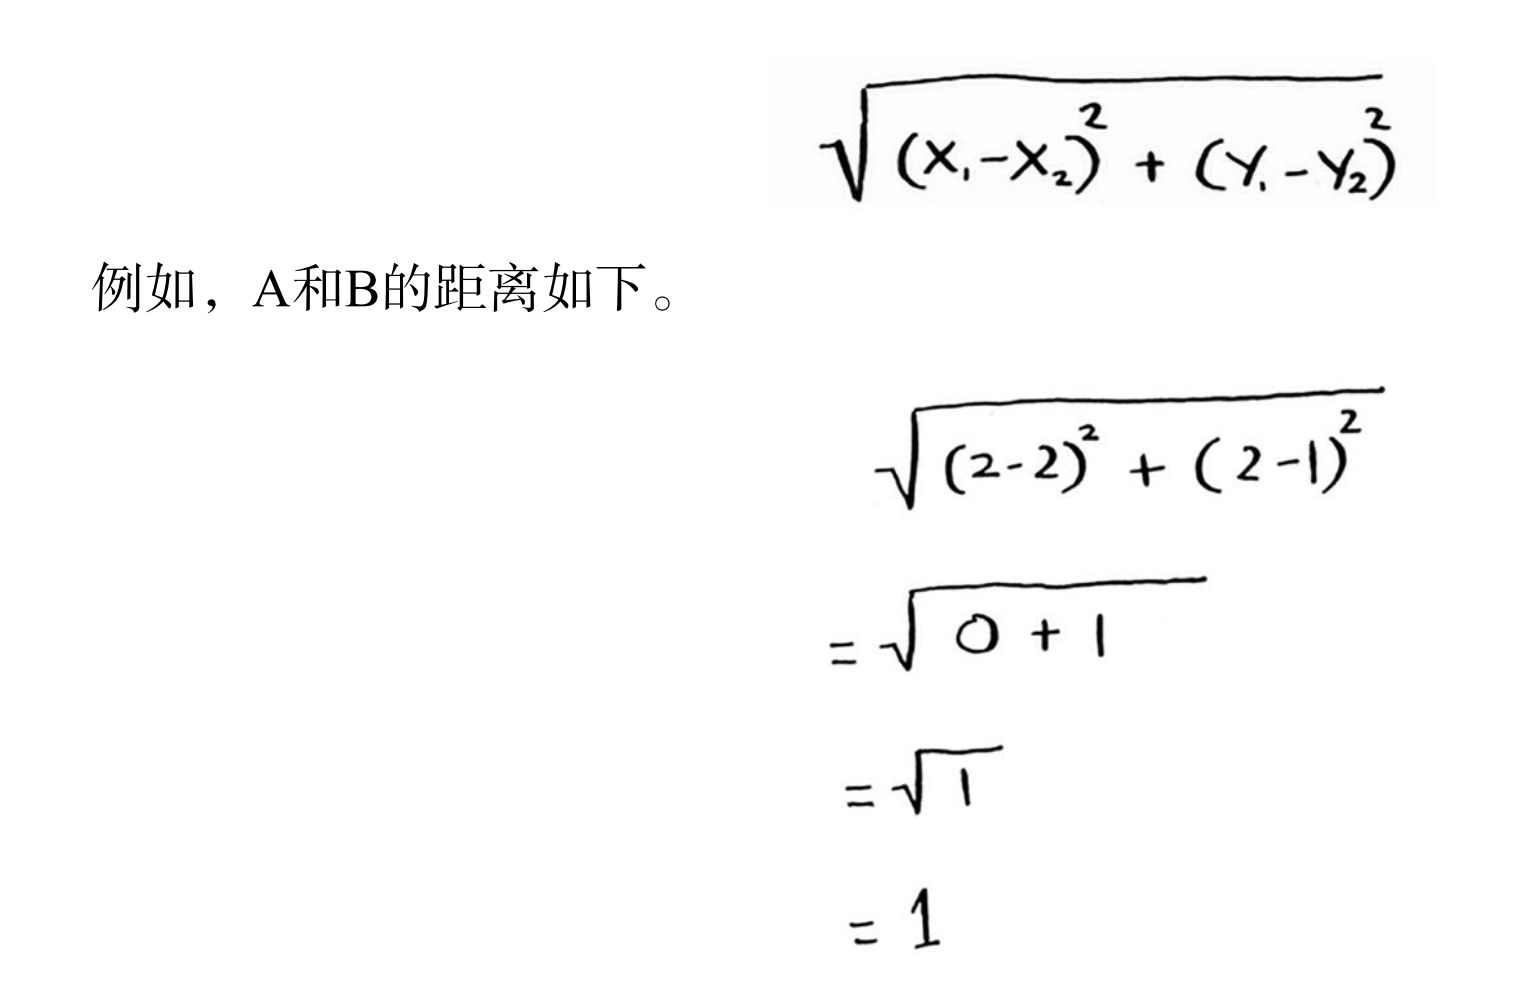 √(X₁-X₂)² + (Y₁-Y₂)²
例如，A和B的距离如下。
√(2-2)² + (2-1)²
= √0 + 1
= √1
= 1